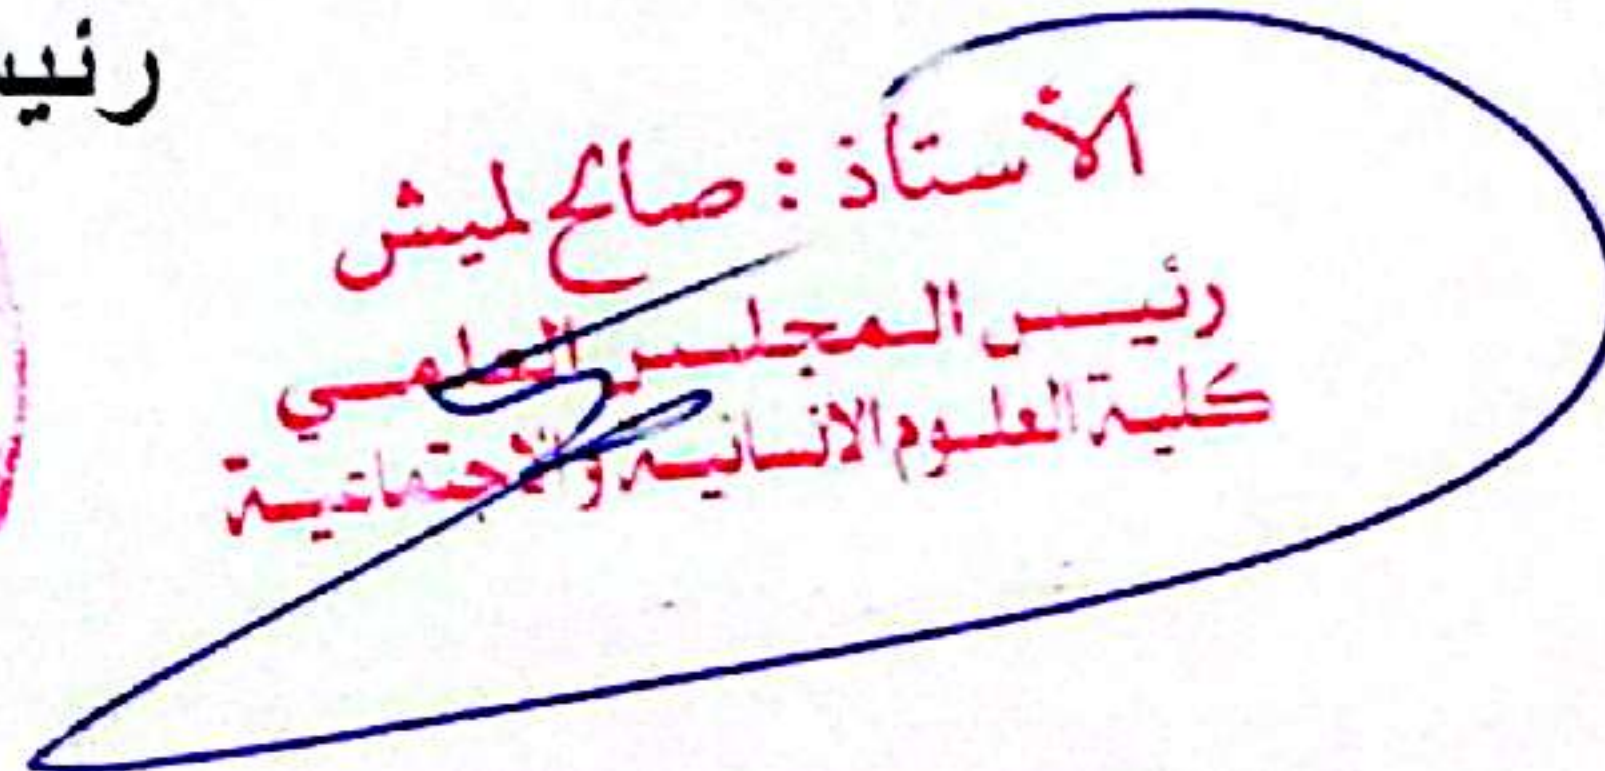 رئيس
الأستاذ : صالح لميش
رئيس المجلس العلمي
كلية العلوم الانسانية والاجتماعية